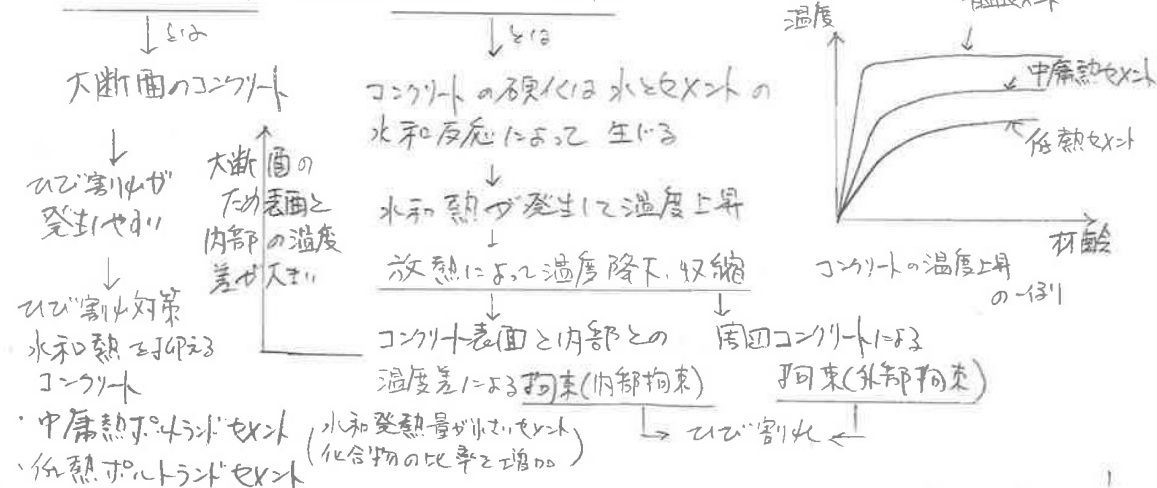 とは
大断面のコンクリート
ひび割れが
発生しやすい
ひび割れ対策
水和熱を抑える
コンクリート
・中庸熱ポルトランドセメント
・低熱ポルトランドセメント
(水和発熱量が小さいセメント
化合物の比率を増加)
大断面の
ため表面と
内部の温度
差が大きい
とは
コンクリートの硬化は水とセメントの
水和反応によって生じる
水和熱が発生して温度上昇
放熱によって温度降下、収縮
コンクリート表面と内部との
温度差による拘束(内部拘束)
周辺コンクリートによる
拘束(外部拘束)
ひび割れ
温度
中庸熱セメント
低熱セメント
材齢
コンクリートの温度上昇
の一例